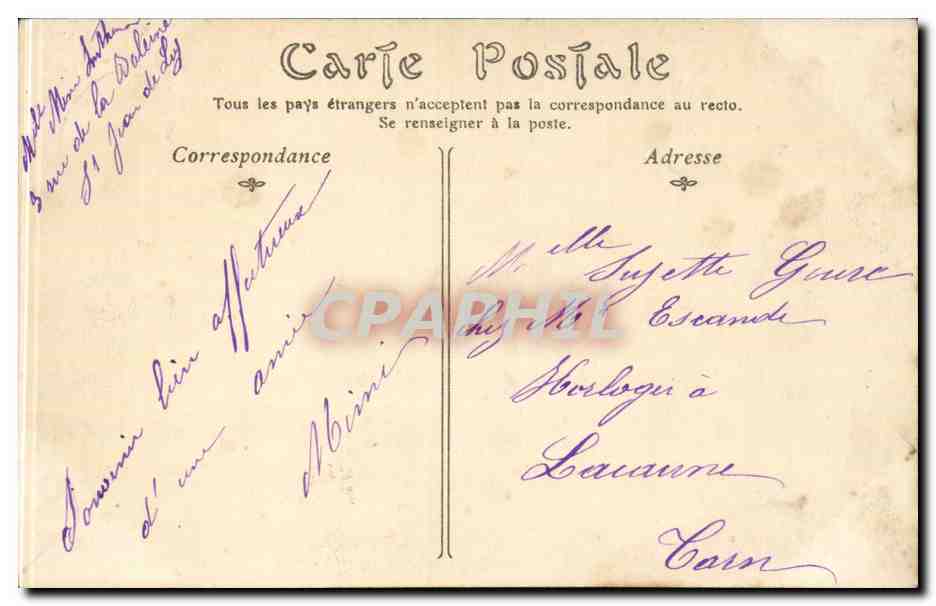 Carte Postale
Tous les pays étrangers n'acceptent pas la correspondance au recto.
Se renseigner à la poste.
Correspondance
Adresse
Mlle Mimi
3 rue de la Baleine
St Jean de Luz
Souvenir bien affectueux
d'une amie
Mimi
Melle Suzette Goure
chez Mr Escande
Horloger à
Lacaune
Tarn
CPAPHIL